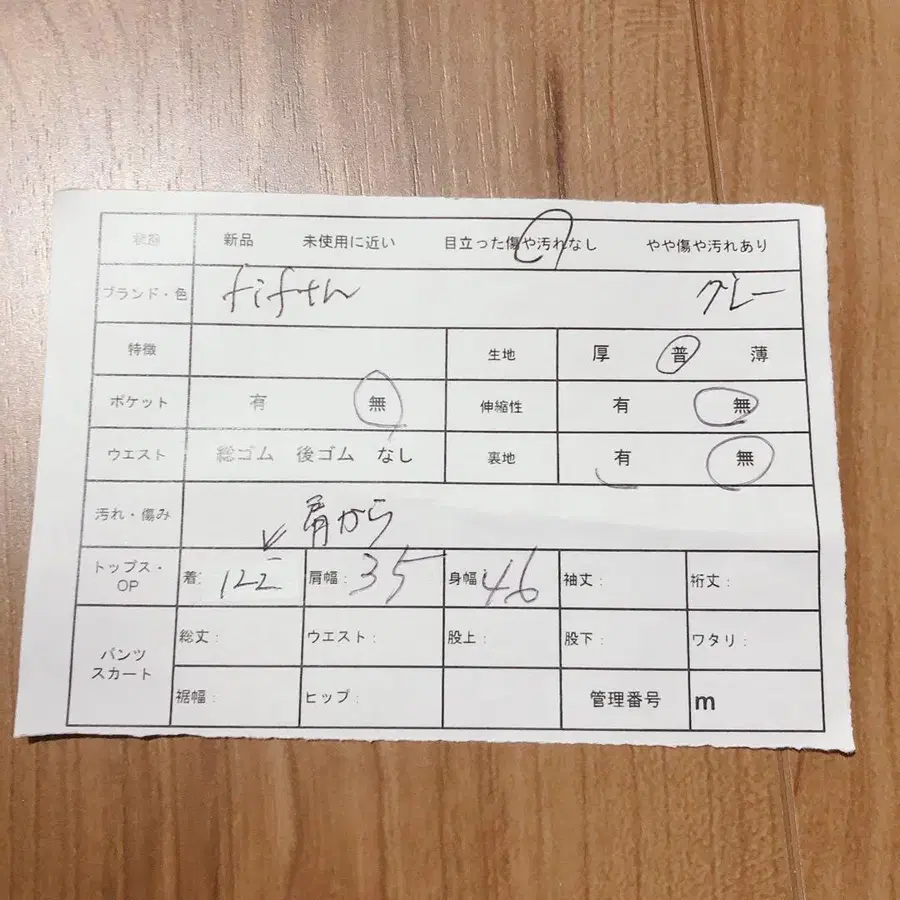 状態 新品 未使用に近い 目立った傷や汚れなし やや傷や汚れあり
ブランド・色 fifth グレー
特徴 生地 厚 普 薄
ポケット 有 無 伸縮性 有 無
ウエスト 総ゴム 後ゴム なし 裏地 有 無
汚れ・傷み 肩から
トップス・OP 着: 122 肩幅: 35 身幅: 46 袖丈: 裄丈:
パンツ スカート 総丈: ウエスト: 股上: 股下: ワタリ:
裾幅: ヒップ: 管理番号 m